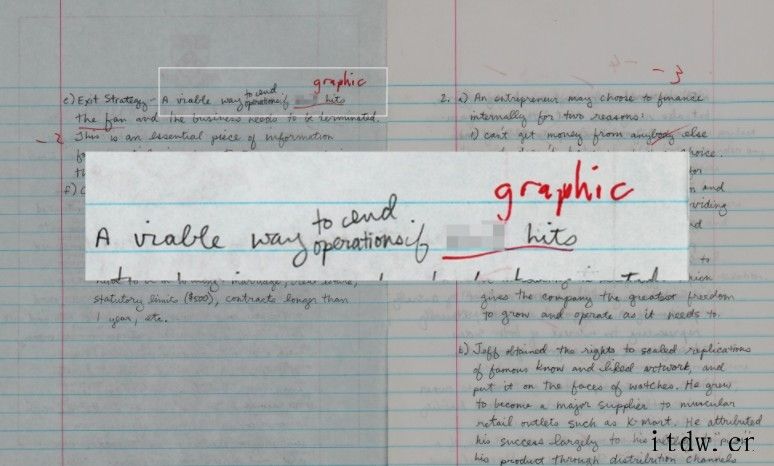 graphic
c) Exit Strategy - A viable way to end operations if hits
the fan and the business needs to be terminated.
-2 This is an essential piece of information
graphic
A viable way to end operations if hits
statutory limits ($500), contracts longer than
1 year, etc.
-3
2. a) An entrepreneur may choose to finance
internally for two reasons:
1) can't get money from anybody else
choice.
for
and
viding
to
gives the company the greatest freedom
to grow and operate as it needs to.
b) Jeff obtained the rights to scaled replications
of famous know and liked artwork, and
put it on the faces of watches. He grew
to become a major supplier to muscular
retail outlets such as K-Mart. He attributed
his success largely to his
his product through distribution channels
itdw.cr